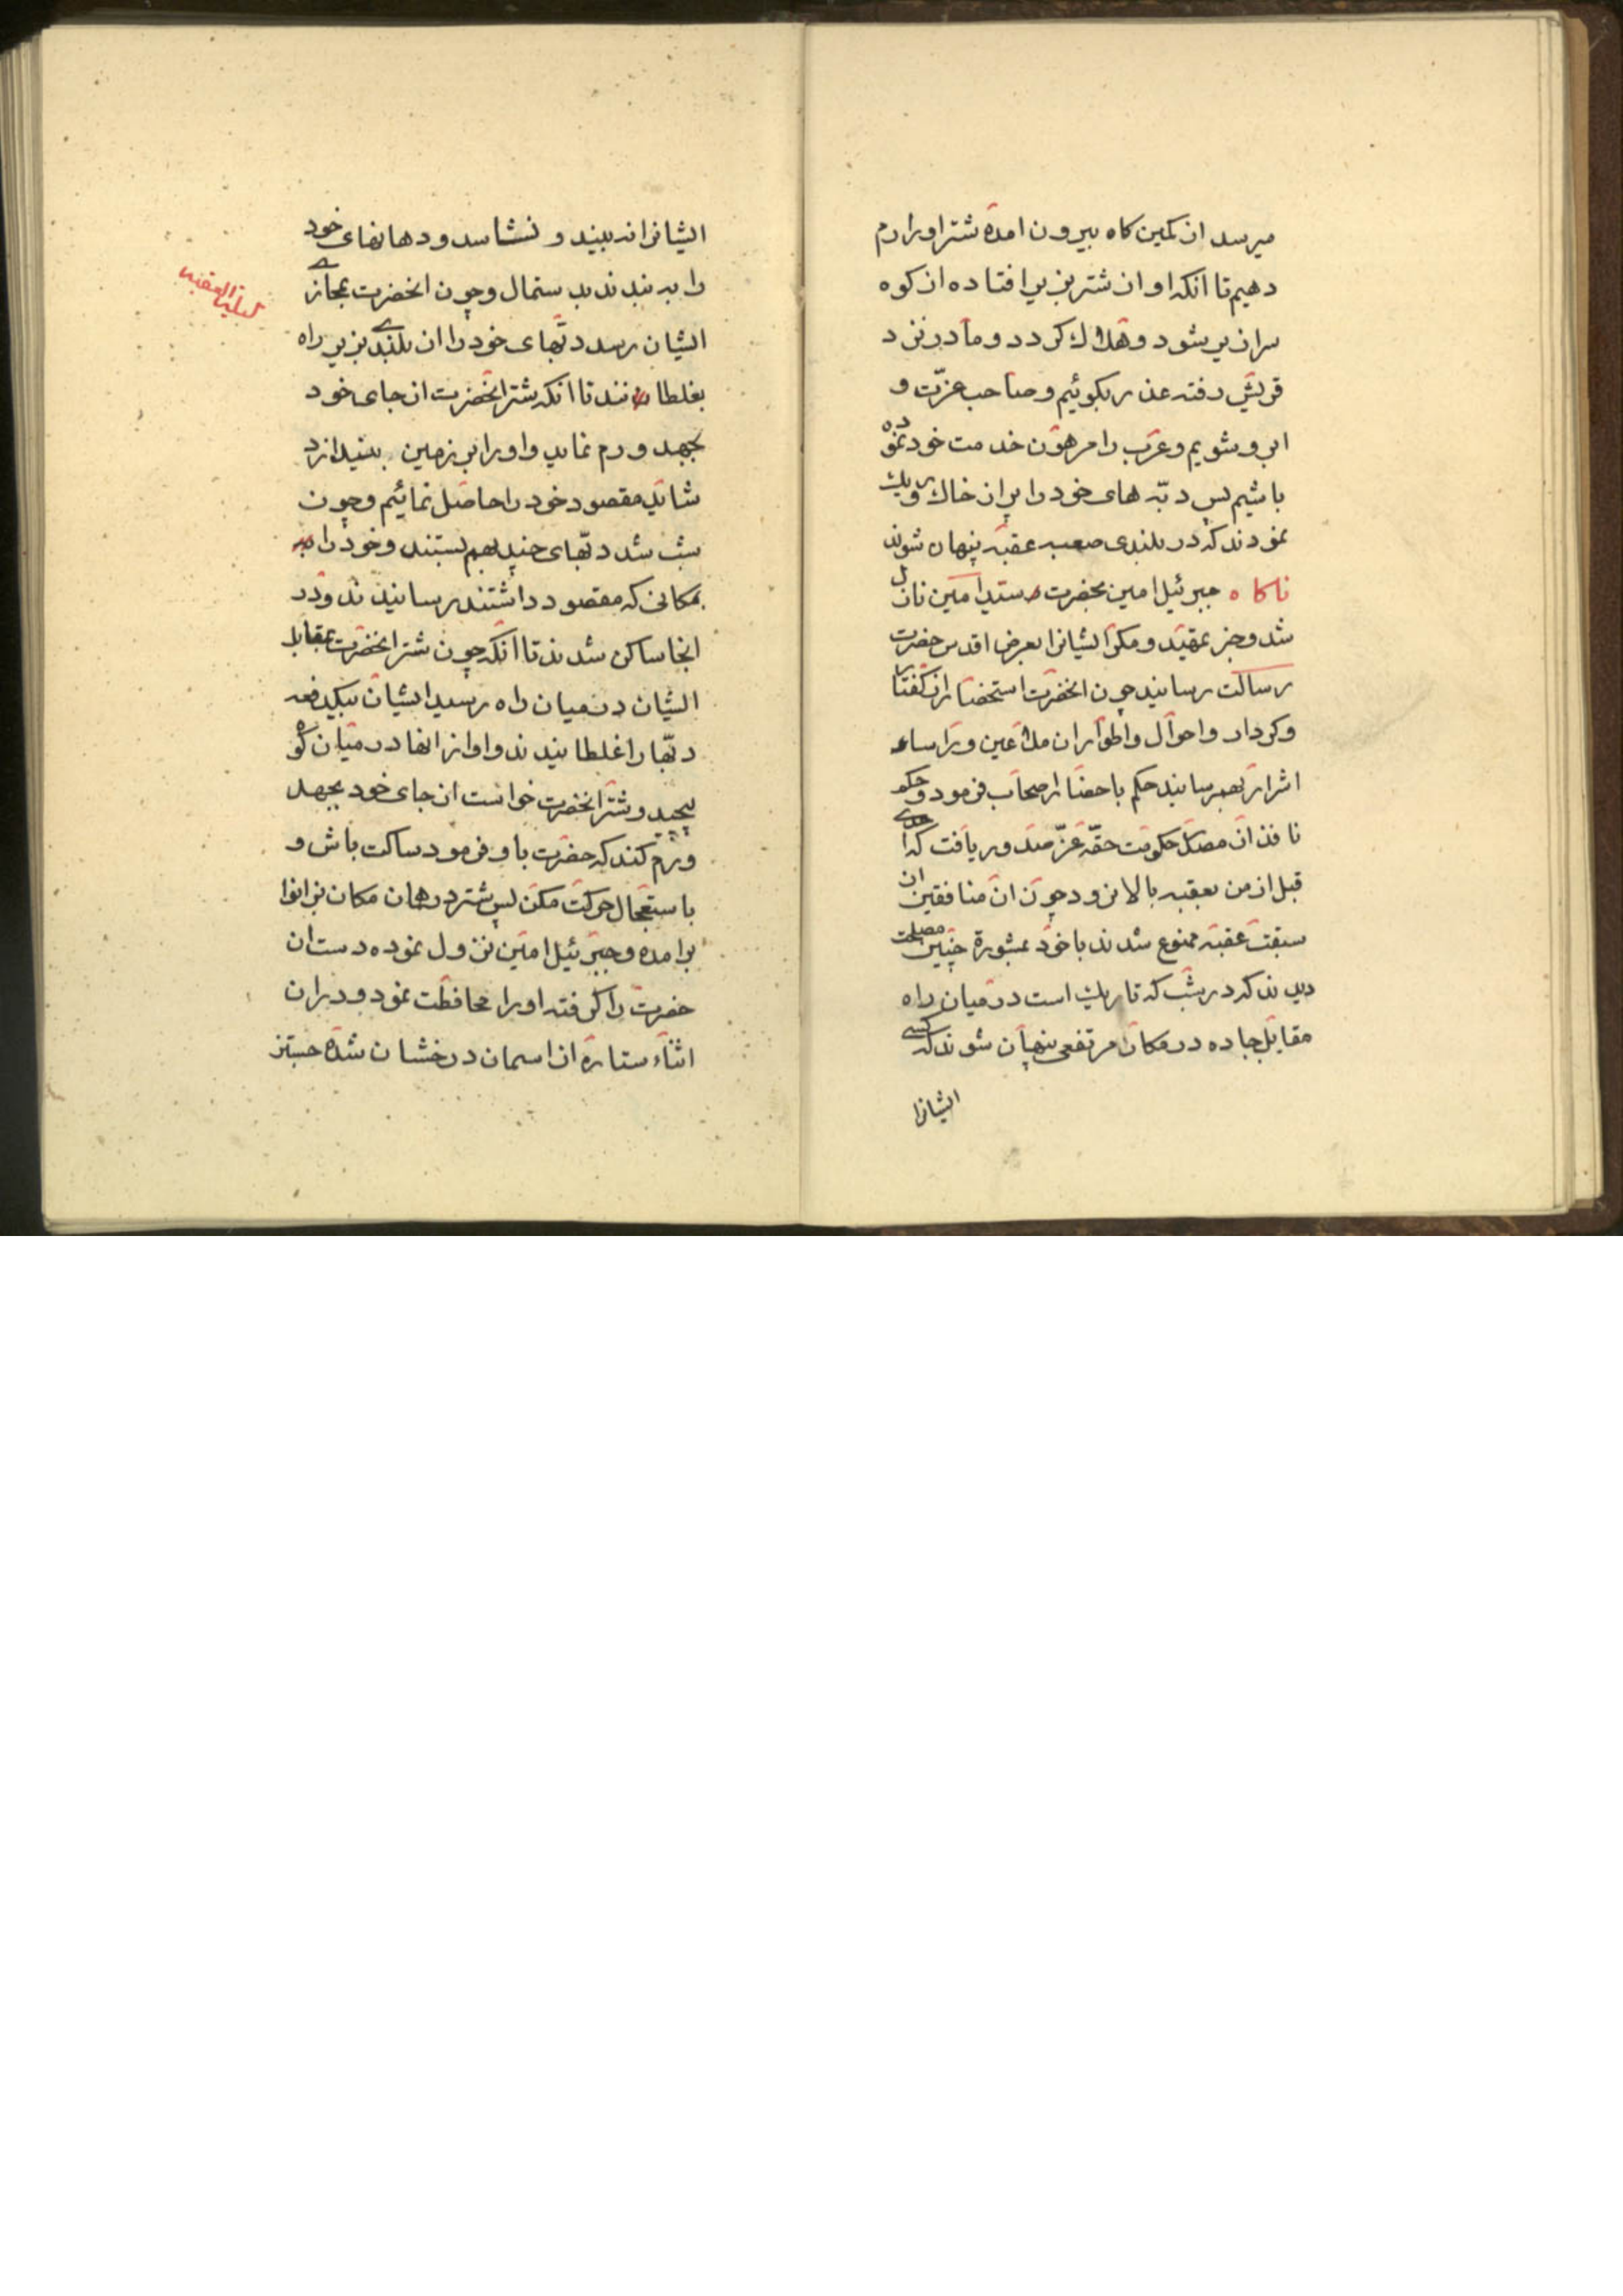 میرسد از کمین کاه بیرون امده شتر او را رم
دهیم تا انکه او از شتر بزیر افتاده از کوه
سرازیر شود و هلاک کردد و ما در نزد
قریش رفته عذر بکوئیم و صاحب عزّت و
ابرو شویم و عرب را مرهون خدمت خود نموده
باشیم پس دبّه های خود را پر از خاک و ریک
نمودند که در بلندی صعب عقبه پنهان شوند
ناکاه جبرئیل امین بحضرت سید امین نازل
شد و خبر تمهید و مکر ایشانرا بعرض اقدس حضرت
رسالت رسانید چون انحضرت استحضار از کفتار
و کردار و احوال و اطوار ان ملاعین و
اشرار بهم رسانید حکم باحضار اصحاب فرمود و حکم
نافذ ان حکومت حقّه عزّ صدور یافت که احدی
قبل از من بعقبه بالا نرود چون ان منافقین از
سبقت عقبه ممنوع شدند با خود بمشورة چنین مصلحت
دیدند که در شب که تاریک است در میان راه
مقابل جاده در مکان مرتفعی پنهان شوند که کسی
ایشانرا
ایشانرا نه بیند و نشناسد و دهانهای خود
را به بندند بدستمال و چون انحضرت بمحاذی
ایشان رسد دبّهای خود را از بلندی بزیر راه
بغلطانند تا انکه شتر انحضرت از جای خود
بجهد و رم نماید و او را بر زمین بیندازد
شاید مقصود خود را حاصل نمائیم و چون
شب شد دبّهای چند بهم بستند و خود را
بمکانی که مقصود داشتند رسانیدند و در
انجا ساکن شدند تا انکه چون شتر انحضرت بمقابل
ایشان در میان راه رسید ایشان بیکدفعه
دبّها را غلطانیدند و اواز انها در میان کوه
پیچید و شتر انحضرت خواست از جای خود بجهد
و رم کند که حضرت باو فرمود ساکت باش و
باستعجال حرکت مکن پس شتر در همان مکان بزانو
در امده و جبرئیل امین نزول نموده دست ان
حضرت را کرفته او را محافظت نمود و در ان
اثناء ستارة از اسمان درخشان شده
لیلة العقبه